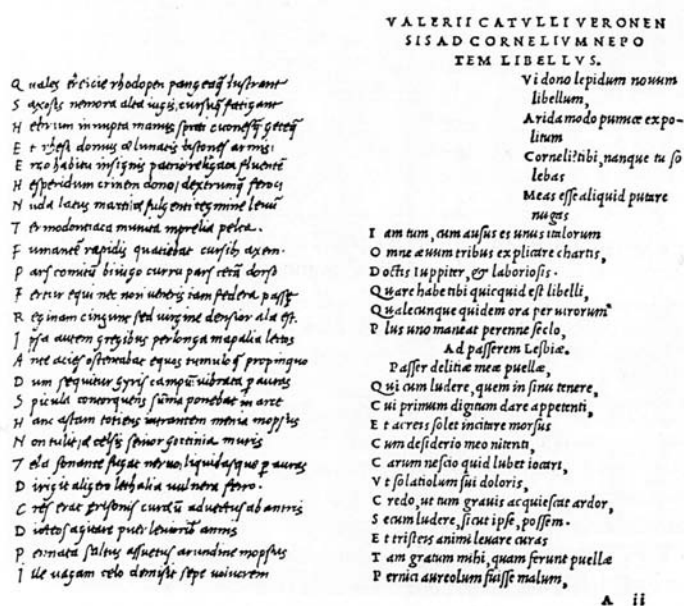 Q uales rhodopen lustrant
S axosis nemora alta iugis, cursuq̃ fatigant
H ebrum innupta manus
E t rhesi domus & lunatis bistones armis:
E rgo habitu insignis patrio religata fluentē
H esperidum crinem dono, dextrumq̃ feroci
N uda latus marti, ac fulgenti tegmine leuū
T ermodontiaca munita pelta.
F umantē rapidis quatiebat cursib; axem.
P ars comitū biiugo curru pars cetā dorso
F ertur equi nec non ueneris iam federa passę
R eginam cingunt sed uirgine densior ala est.
I psa autem gregibus perlonga mapalia letos
A nte acies ostentabat equos tumuloq̃ propinquo
D um sequitur gyris campū: uibrata p auras
S picula contorquens sūma ponebat in arce
H anc astam totiens intrantem menia mopsus
N on tulit, & celsis senior gortinia muris
T ela sonante fugat neruo, liquidasque p auras
D irigit aligero lethalia uulnera ferro.
C res erat grisonis curetū aduectus ab antris
D icteos agitare puer leuiorib annis
P ennata saltus assuetus arundine mopsus
I lle uagam celo demisit sepe uolucrem
VALERII CATVLLI VERONEN
SIS AD CORNELIVM NEPO
TEM LIBELLVS.
V i dono lepidum nouum
libellum,
A rida modo pumice expo-
litum
Corneli? tibi, nanque tu so
lebas
Meas esse aliquid putare
nugas
I am tum, cum ausus es unus italorum
O mne æuum tribus explicare chartis,
D octis Iuppiter, & laboriosis.
Q uare habe tibi quicquid est libelli,
Q ualecunque quidem ora per uirorum
P lus uno maneat perenne seclo,
Ad passerem Lesbiæ.
P asser delitiæ meæ puellæ,
Q ui cum ludere, quem in sinu tenere,
C ui primum digitum dare appetenti,
E t acreis solet incitare morsus
C um desiderio meo nitenti,
C arum nescio quid lubet iocari,
V t solatiolum sui doloris,
C redo, ut tum grauis acquiescat ardor,
S ecum ludere, sicut ipse, possem.
E t tristeis animi leuare curas
T am gratum mihi, quam ferunt puellæ
P ernici aureolum fuisse malum,
A ii